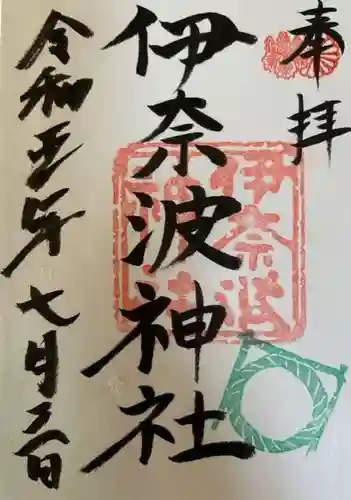 奉拝
伊奈波神社
伊奈波
神社
令和五年七月三日